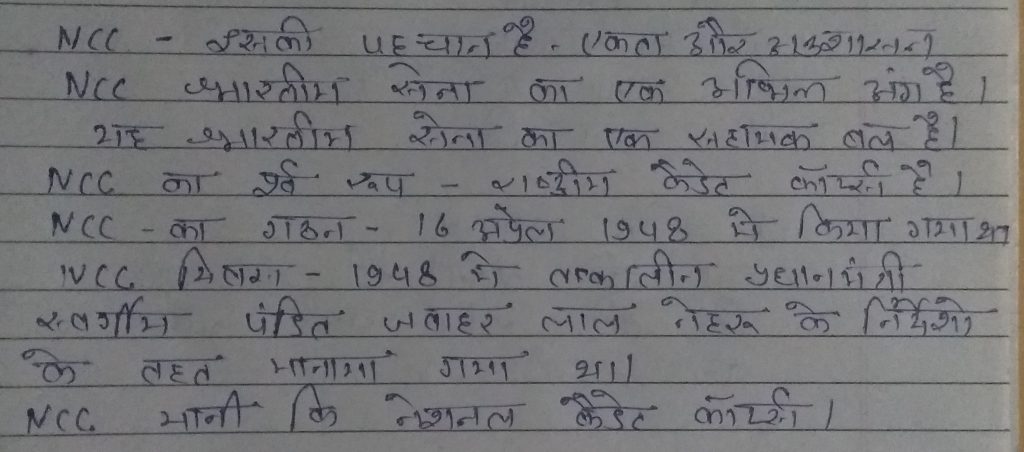 NCC - इसकी पहचान है - एकता और अनुशासन
NCC भारतीय सेना का एक अभिन्न अंग है।
यह भारतीय सेना का एक सहायक बल है।
NCC का पूर्व रूप - राष्ट्रीय कैडेट कॉर्प्स है।
NCC - का गठन - 16 अप्रैल 1948 मे किया गया था
NCC - 1948 मे तत्कालीन प्रधानमंत्री
स्वर्गीय पंडित जवाहर लाल नेहरू के निर्देशो
के तहत गया था।
NCC यानी कि नेशनल कैडेट कॉर्प्स।